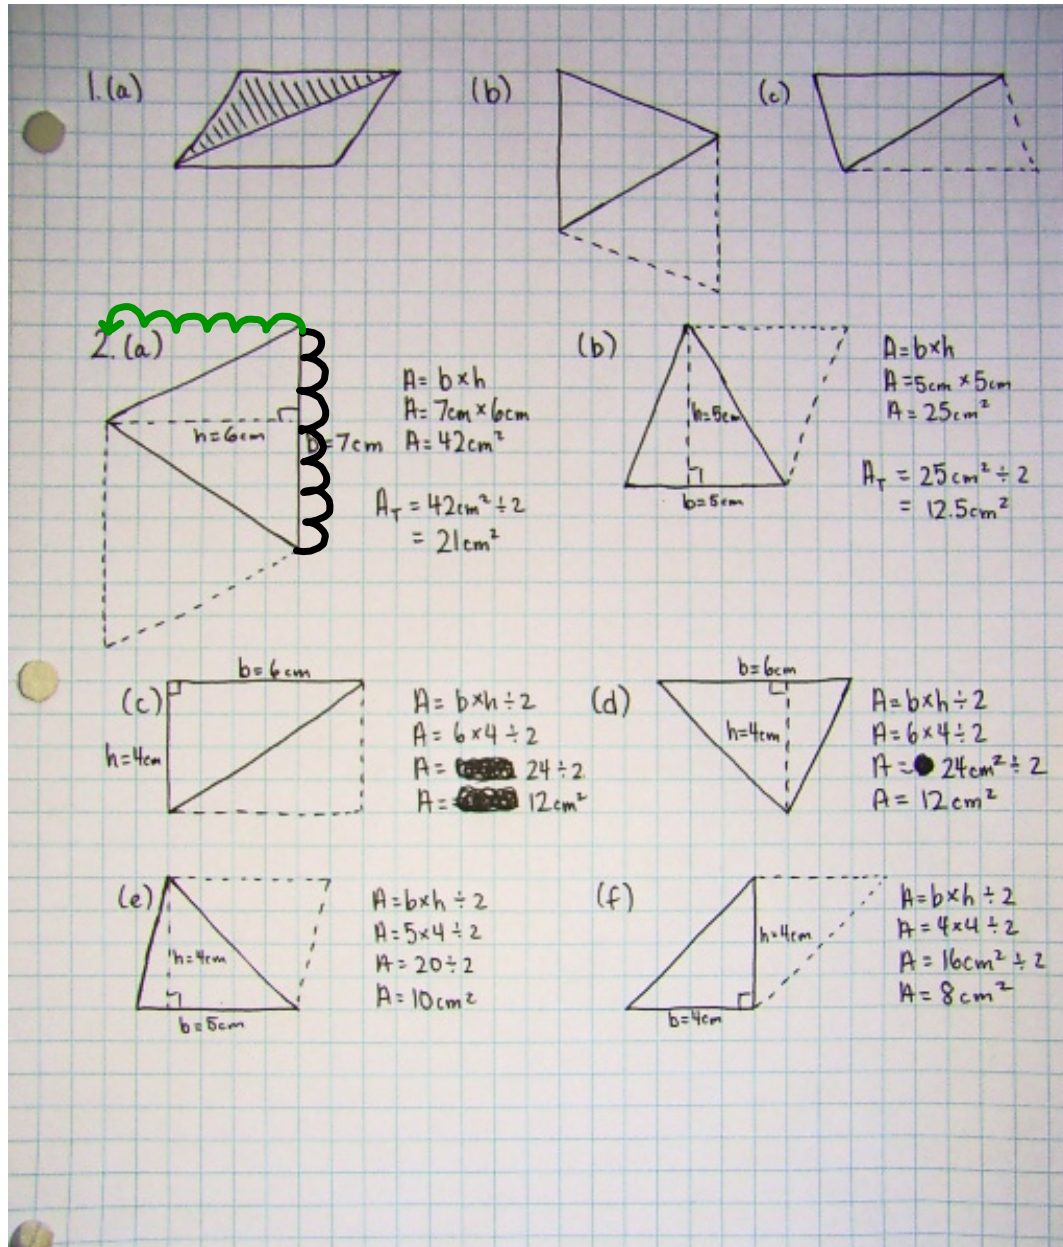 1.(a)
(b)
(c)
2.(a)
h=6cm
b=7cm
A= b×h
A= 7cm×6cm
A= 42cm²
A_T = 42cm²÷2
= 21cm²
(b)
h=5cm
b=5cm
A=b×h
A=5cm×5cm
A= 25cm²
A_T = 25cm²÷2
= 12.5cm²
(c)
b=6cm
h=4cm
A= b×h÷2
A= 6×4÷2
A= 24÷2
A= 12cm²
(d)
b=6cm
h=4cm
A=b×h÷2
A=6×4÷2
A= 24cm²÷2
A= 12cm²
(e)
h=4cm
b=5cm
A=b×h÷2
A=5×4÷2
A=20÷2
A=10cm²
(f)
h=4cm
b=4cm
A=b×h÷2
A=4×4÷2
A=16cm²÷2
A=8cm²